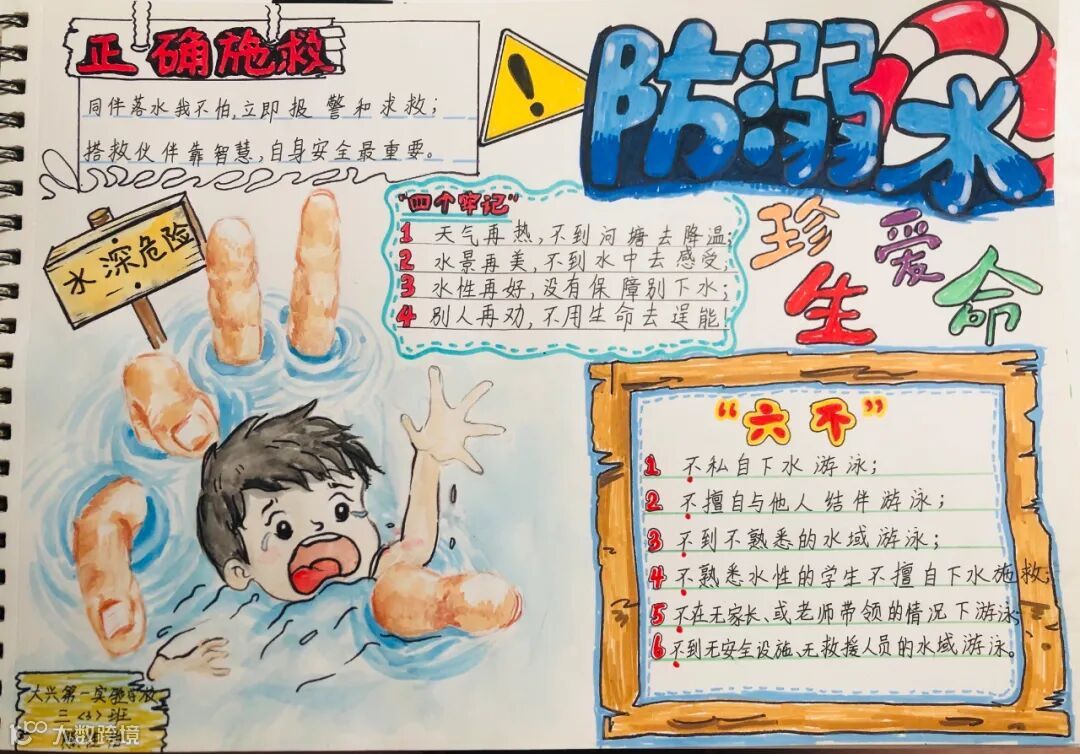 正确施救
同伴落水我不怕,立即报警和求救;
搭救伙伴靠智慧,自身安全最重要。
防溺水
珍爱生命
水深危险
"四个牢记"
1 天气再热,不到河塘去降温;
2 水景再美,不到水中去感受;
3 水性再好,没有保障别下水;
4 别人再劝,不用生命去逞能!
"六不"
1 不私自下水游泳;
2 不擅自与他人结伴游泳;
3 不到不熟悉的水域游泳;
4 不熟悉水性的学生不擅自下水施救;
5 不在无家长、或老师带领的情况下游泳;
6 不到无安全设施、无救援人员的水域游泳。
大兴第一实验学校
三〈3〉班
大数跨境